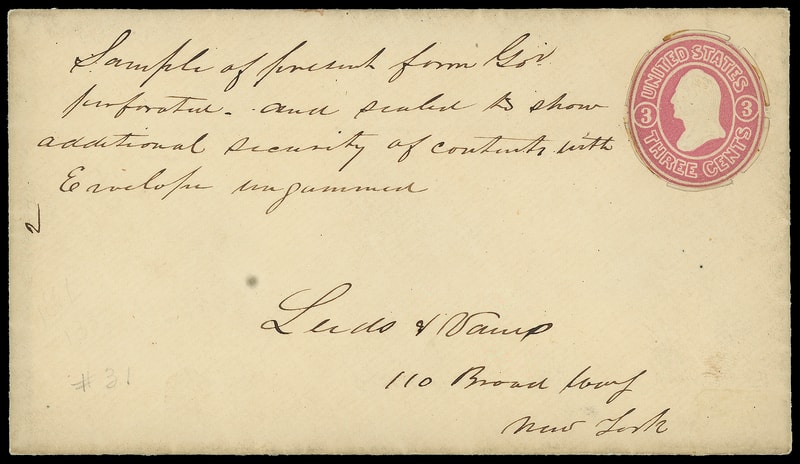 Sample of present form Gov.
perforated - and sealed to show
additional security of contents with
Envelope ungummed
2
Leeds &
110 Broad way
New York
# 31
UNITED STATES
3 3
THREE CENTS